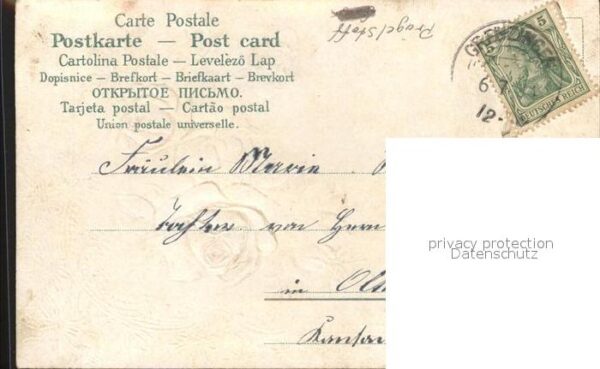 Carte Postale
Postkarte — Post card
Cartolina Postale — Levelező Lap
Dopisnice — Brefkort — Briefkaart — Brevkort
ОТКРЫТОЕ ПИСЬМО.
Tarjeta postal — Cartão postal
Union postale universelle.
Prügelstaff
5 5
DEUTSCHES REICH
6
12-
Fräulein Marie
Tochter von Herrn
in
privacy protection
Datenschutz